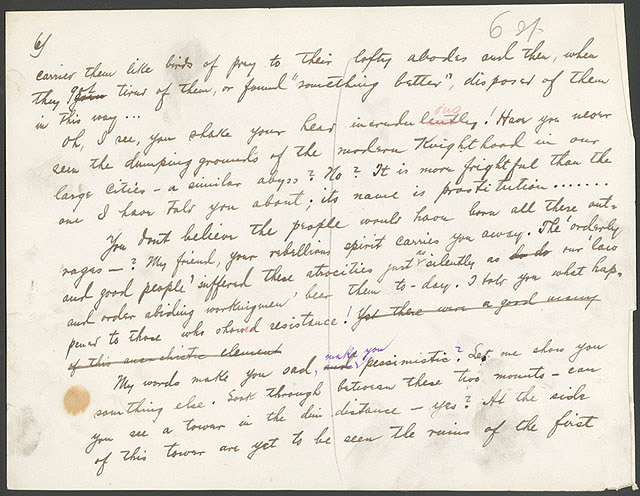 6)
6 of
carried them like birds of prey to their lofty abodes and then, when
they got tired of them, or found "something better", disposed of them
in this way...
Oh, I see, you shake your head incredulously! Have you never
seen the dumping grounds of the modern Knighthood in our
large cities – a similar abyss? No? It is more frightful than the
one I have told you about; its name is prostitution.......
You dont believe the people would have born all these out-
rages –? My friend, your rebellious spirit carries you away. The 'orderly
and good people' suffered these atrocities just as silently as do our 'law
and order abiding workingmen' bear them to-day. I told you what hap-
pened to those who showed resistance! Yet there were a good many
of this anarchistic element
My words make you sad, make you pessimistic? Let me show you
something else. Look through between these two mounts – can
you see a tower in the dim distance – yes? At the side
of this tower are yet to be seen the ruins of the first